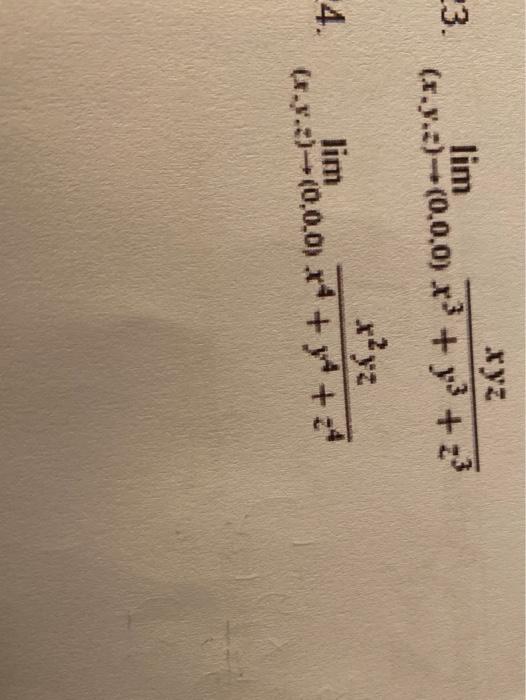 23. lim (x,y,z)→(0,0,0) xyz / (x³ + y³ + z³)
24. lim (x,y,z)→(0,0,0) x²yz / (x⁴ + y⁴ + z⁴)